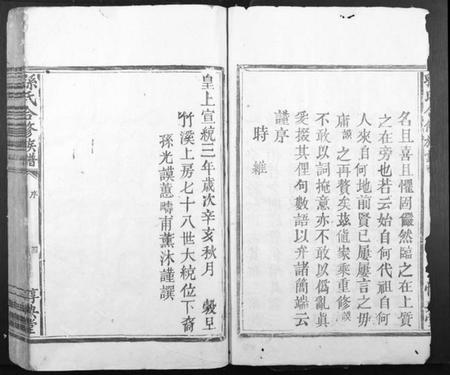 名且喜且懼固儼然臨之在上質
之在旁也若云始自何代祖自何
人來自何地前賢已屢屢言之毋
庸謨之再贅矣茲值家乘重修謨
不敢以詞掩意亦不敢以僞亂眞
爰掇其俚句數語以弁諸簡端云
謹序
時維
皇上宣統三年歲次辛亥秋月 穀旦
竹溪上房七十八世大統位下裔
孫光謨藎疇甫薰沐謹撰
孫氏合修族譜
序
四